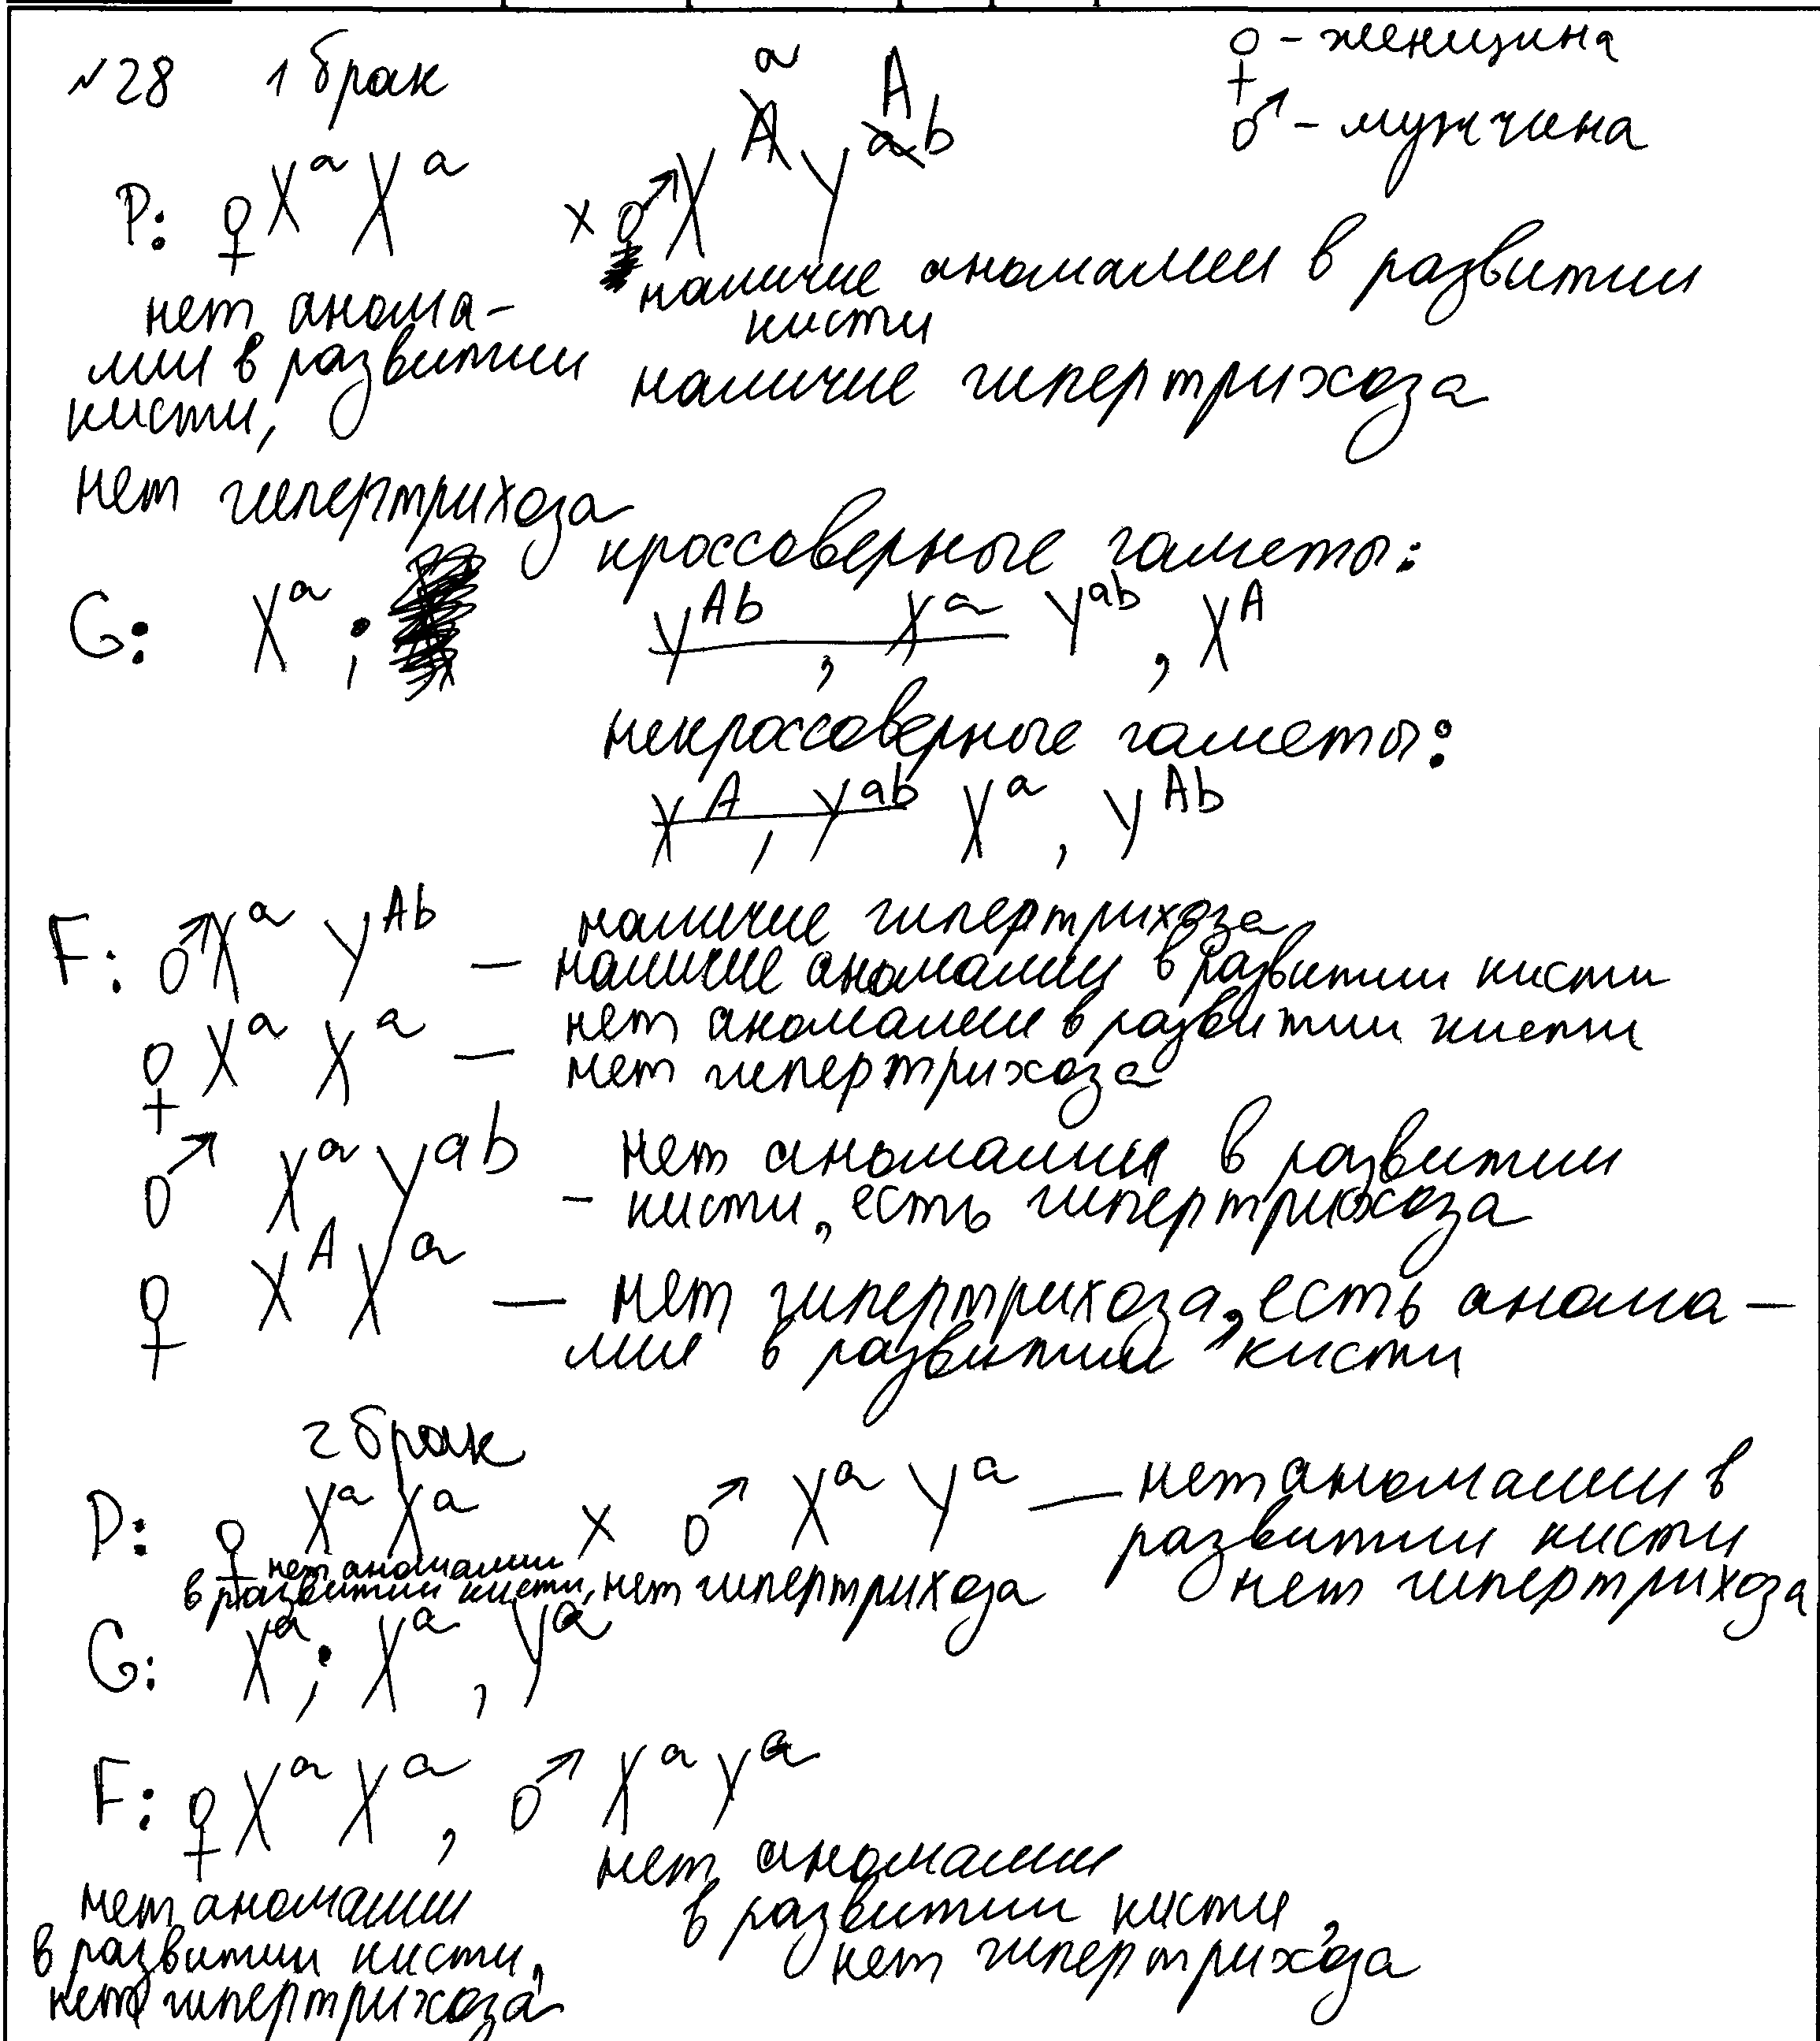 №28 1 брак
♀ - женщина
♂ - мужчина
P: ♀ XᵃXᵃ x ♂ XᵃYᴬb
нет анома-
лии в развитии
кисти,
нет гипертрихоза
наличие аномалии в развитии
кисти
наличие гипертрихоза
кроссоверные гаметы:
G: Xᵃ; Yᴬb, Xᵃ Yᵃb, Xᴬ
некроссоверные гаметы:
Xᴬ, Yᵃb Xᵃ, Yᴬb
наличие гипертрихоза
F: ♂XᵃYᴬb — наличие аномалии в развитии кисти
♀XᵃXᵃ — нет аномалии в развитии кисти
нет гипертрихоза
♂ XᵃYᵃb - нет аномалии в развитии
кисти, есть гипертрихоза
♀ XᴬXᵃ — нет гипертрихоза, есть анома-
лия в развитии кисти
2 брак
P: ♀ XᵃXᵃ x ♂ XᵃYᵃ — нет аномалии в
развитии кисти
нет гипертрихоза
нет аномалии
в развитии кисти, нет гипертрихоза
G: Xᵃ; Xᵃ, Yᵃ
F: ♀XᵃXᵃ, ♂ XᵃYᵃ
нет аномалии
в развитии кисти,
нет гипертрихоза
нет аномалии
в развитии кисти,
нет гипертрихоза